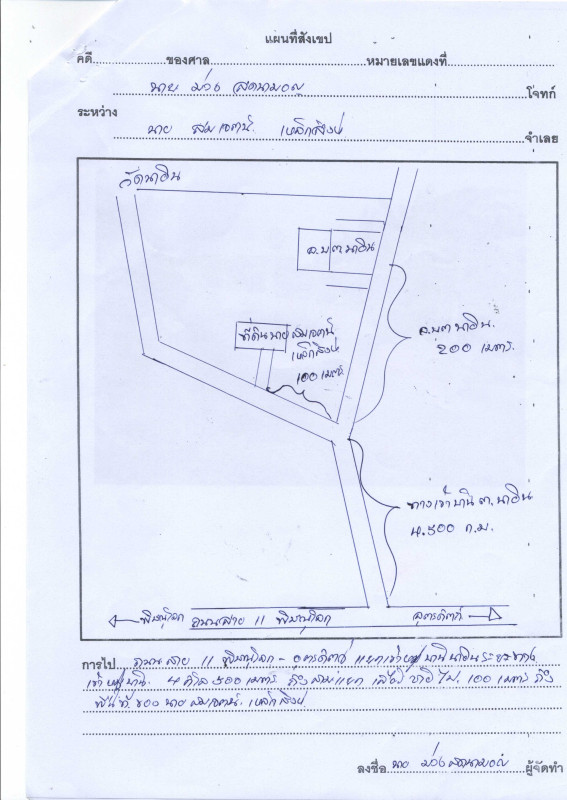 แผนที่สังเขป
คดี ของศาล หมายเลขแดงที่
นาย ม่วง โจทก์
ระหว่าง
นาย สมเจตน์ เหล็กสิงห์ จำเลย
วัดนาอิน
อ.บ.ต นาอิน
ที่ดินนาย สมเจตน์
เหล็กสิงห์
100 เมตร
อ.บ.ต นาอิน.
200 เมตร.
ทางเข้าบ้าน ต.นาอิน
4.500 ก.ม.
พิษณุโลก ถนนสาย 11 พิษณุโลก อุตรดิตถ์
การไป ถนนสาย 11 พิษณุโลก - อุตรดิตถ์ แยกเข้าหมู่บ้านนาอินระยะทาง
เข้าหมู่บ้าน. 4 กิโล 500 เมตร ถึงสามแยก เลี้ยวซ้ายไป. 100 เมตร ถึง
ที่ นาย สมเจตน์ เหล็กสิงห์
ลงชื่อ นาย ม่วง ผู้จัดทำ